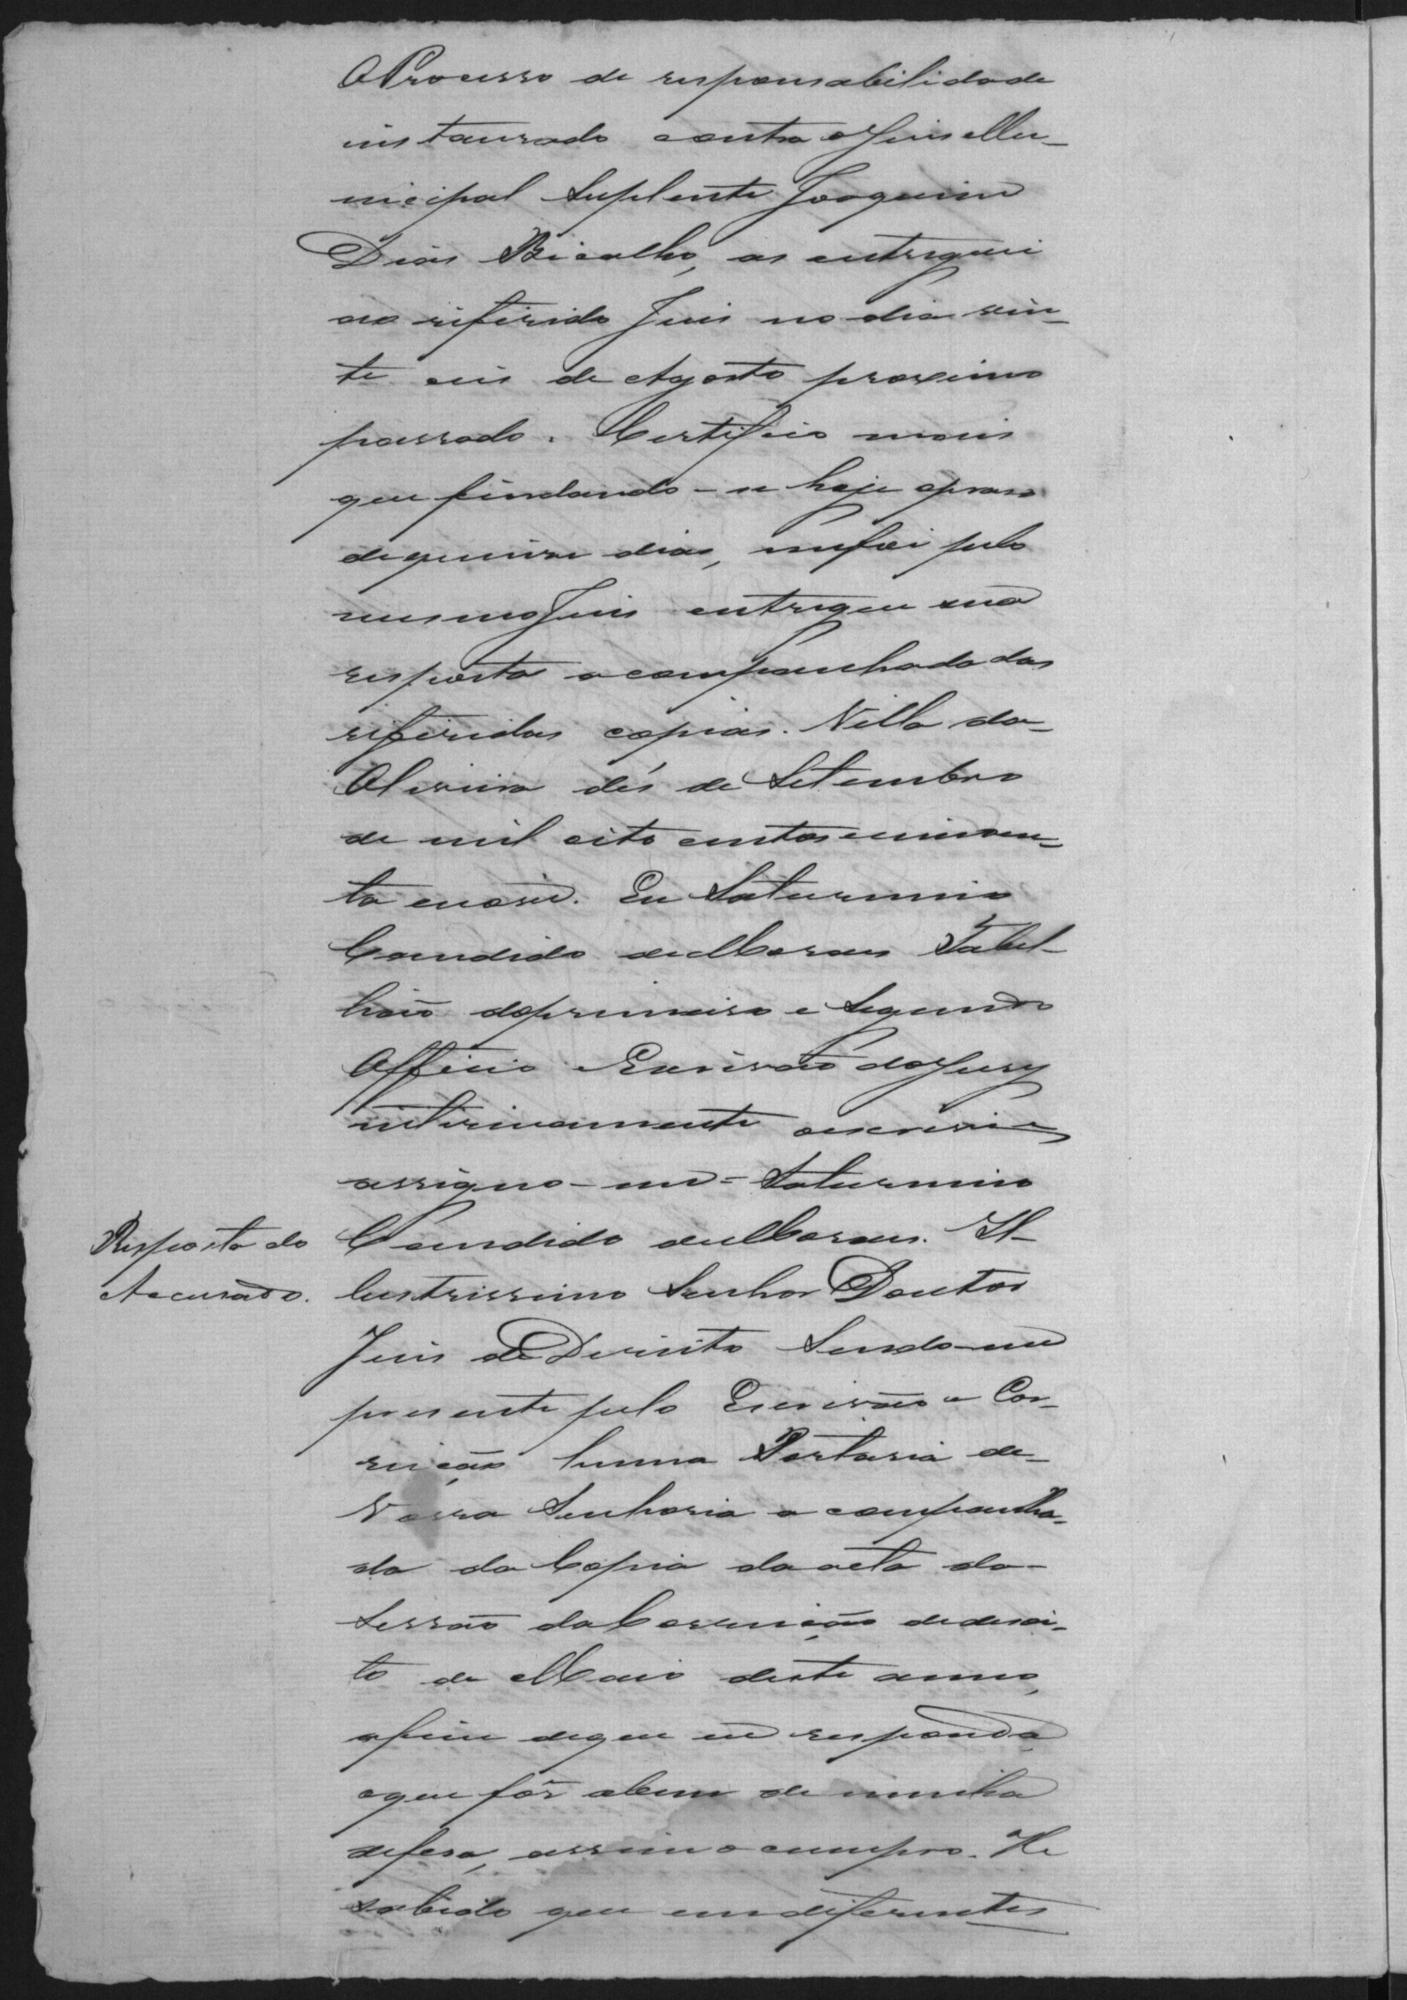 O Processo de responsabilidade
instaurado contra o Juis Mu-
nicipal Suplente Joaquim
Dias Bicalho, as entreguei
ao referido Juis no dia vin-
te seis de Agosto proximo
passado. Certifico mais
que findando-se hoje o praso
de quinse dias, me foi pelo
mesmo Juis entregue sua
resposta acompanhada das
referidas copias. Villa da
Oliveira dés de Setembro
de mil oito centos e cincoen-
ta e nove. Eu Saturnino
Candido de Moraes Tabel-
lião do primeiro e Segundo
Officio e Escrivão do Jury
interinamente o escrevi e
assigno-me = Saturnino
Resposta do
Accusado.
Candido de Moraes. Il-
lustrissimo Senhor Doutor
Juis de Direito Sendo-me
presente pelo Escrivão a Cor-
reição huma Portaria de
Vossa Senhoria acompanha-
da da Copia da acta da
Sessão da Correição de desoi-
to de Maio deste anno,
afim de que eu responda
o que fôr a bem de minha
defesa, assim o cumpro. He
sabido que em diferentes